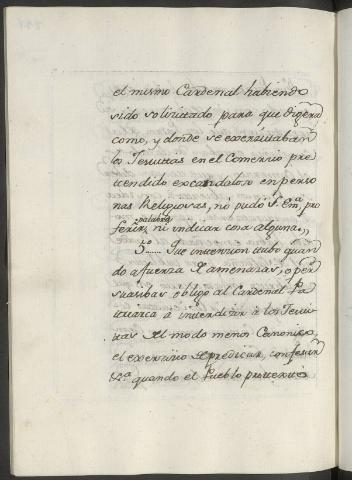 el mismo Cardenal habiendo
sido solizitado para que digera
como, y donde se exerzitaban
los Jesuitas en el Comerzio pre
tendido escandaloso en perso
nas Religiosas, no pudo S. Em.ª pro
palabra
ferir, ni indicar cosa alguna.,,
5.º...... Que intenzion tubo quan
do a fuerza de amenazas, o per
suasibas obligo al Cardenal Pa
triarca à interdizir à los Jesui
tas del modo menos Canonico
el exerzizio de predicar, confesar
&.ª quando el Pueblo protexta